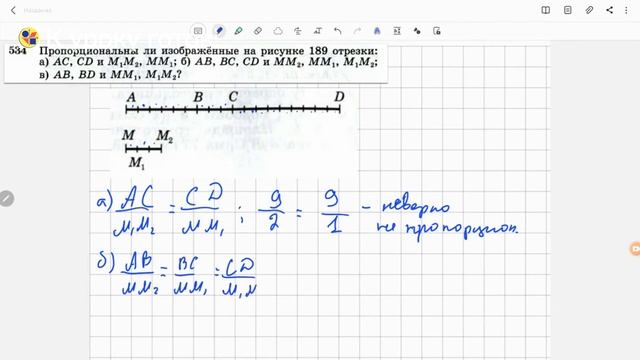 534 Пропорциональны ли изображённые на рисунке 189 отрезки:
а) AC, CD и M₁M₂, MM₁; б) AB, BC, CD и MM₂, MM₁, M₁M₂;
в) AB, BD и MM₁, M₁M₂?
A B C D
M M₂
M₁
а) AC/M₁M₂ = CD/MM₁ ; 9/2 = 9/1 – неверно
не пропорцион.
б) AB/MM₂ = BC/MM₁ = CD/M₁M